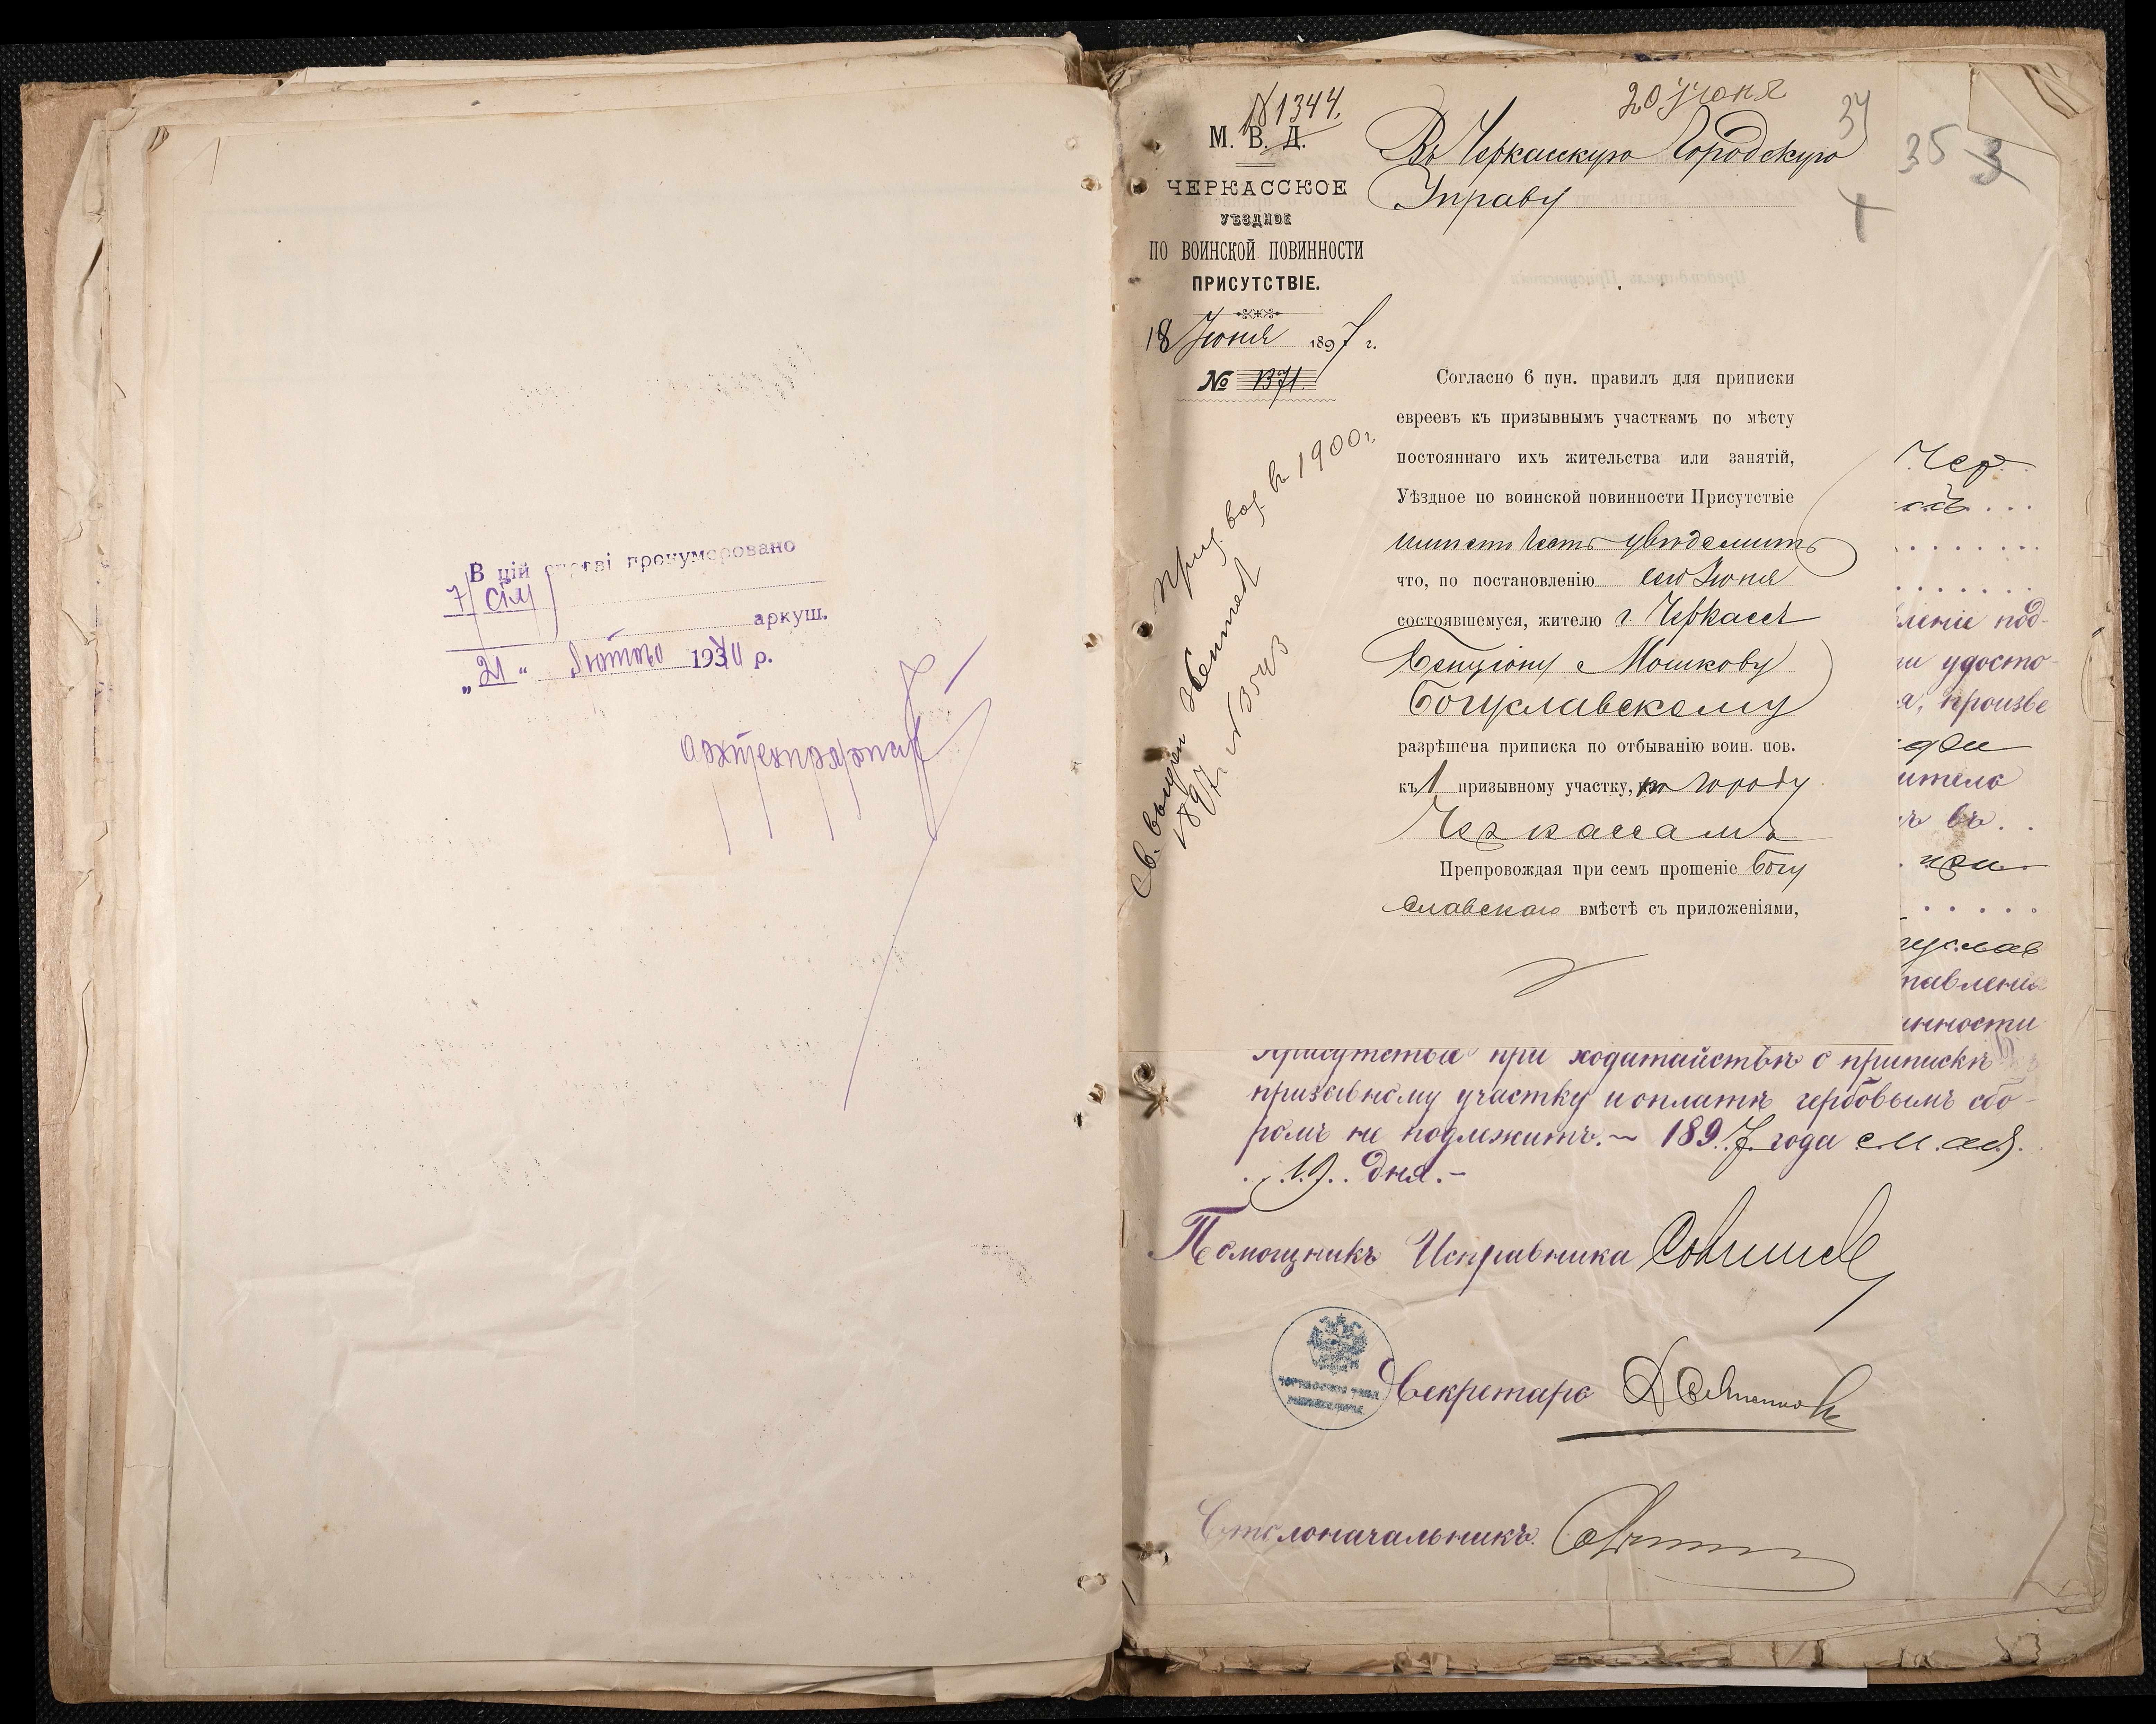 В цій справі пронумеровано
7/ сім/
аркуш.
„21“ лютого 1940 р.
№ 1344.
20 Іюня
34
35
3
М. В. Д.
ЧЕРКАССКОЕ
УѢЗДНОЕ
ПО ВОИНСКОЙ ПОВИННОСТИ
ПРИСУТСТВІЕ.
18 Іюня 1897 г.
№ 1371.
Въ Черкасскую Городскую
Управу
Согласно 6 пун. правилъ для приписки
евреевъ къ призывнымъ участкамъ по мѣсту
постояннаго ихъ жительства или занятій,
Уѣздное по воинской повинности Присутствіе
имѣетъ честь увѣдомить
что, по постановленію сего Іюня
состоявшемуся, жителю г. Черкассъ
Бенціону Мошкову
Богуславскому
разрѣшена приписка по отбыванію воин. пов.
къ 1 призывному участку, по городу
Черкассамъ
Препровождая при семъ прошеніе Богу
славскаго вмѣстѣ съ приложеніями,
въ 1900 г.
Св. выдан
1897 г. № 3543
Чер
леніе под-
ли удосто-
я, произве
ителѣ
въ..
при
гуслав
тавленія
инности
Присутствіе при ходатайствѣ о припискѣ
призывному участку и оплатѣ гербовымъ сбо-
ромъ не подлежитъ.— 1897 года мая
19 дня.—
Помощникъ Исправника
Секретарь
Столоначальникъ.